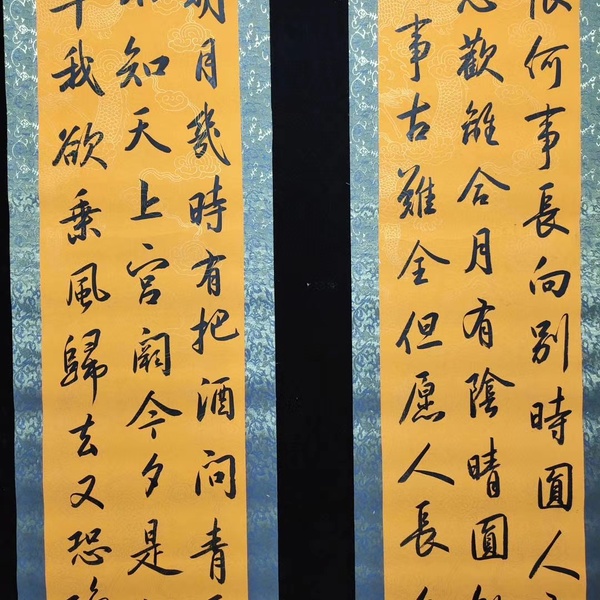 月幾時有把酒問青
知天上宮闕今夕是
我欲乘風歸去又恐
何事長向別時圓人
歡離合月有陰晴圓
事古難全但愿人長